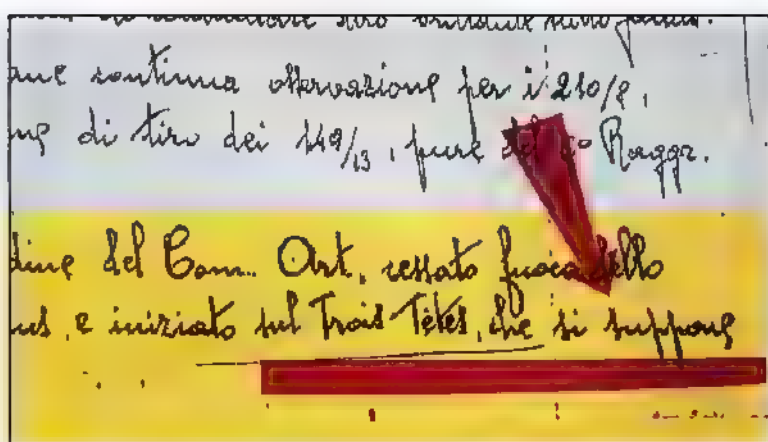 continua osservazione per i 210/8,
di tiro dei 149/13, pure del 6° Raggr.
dine del Com. Art. cessato fuoco dello
us, e iniziato sul Trois Têtes, che si suppone